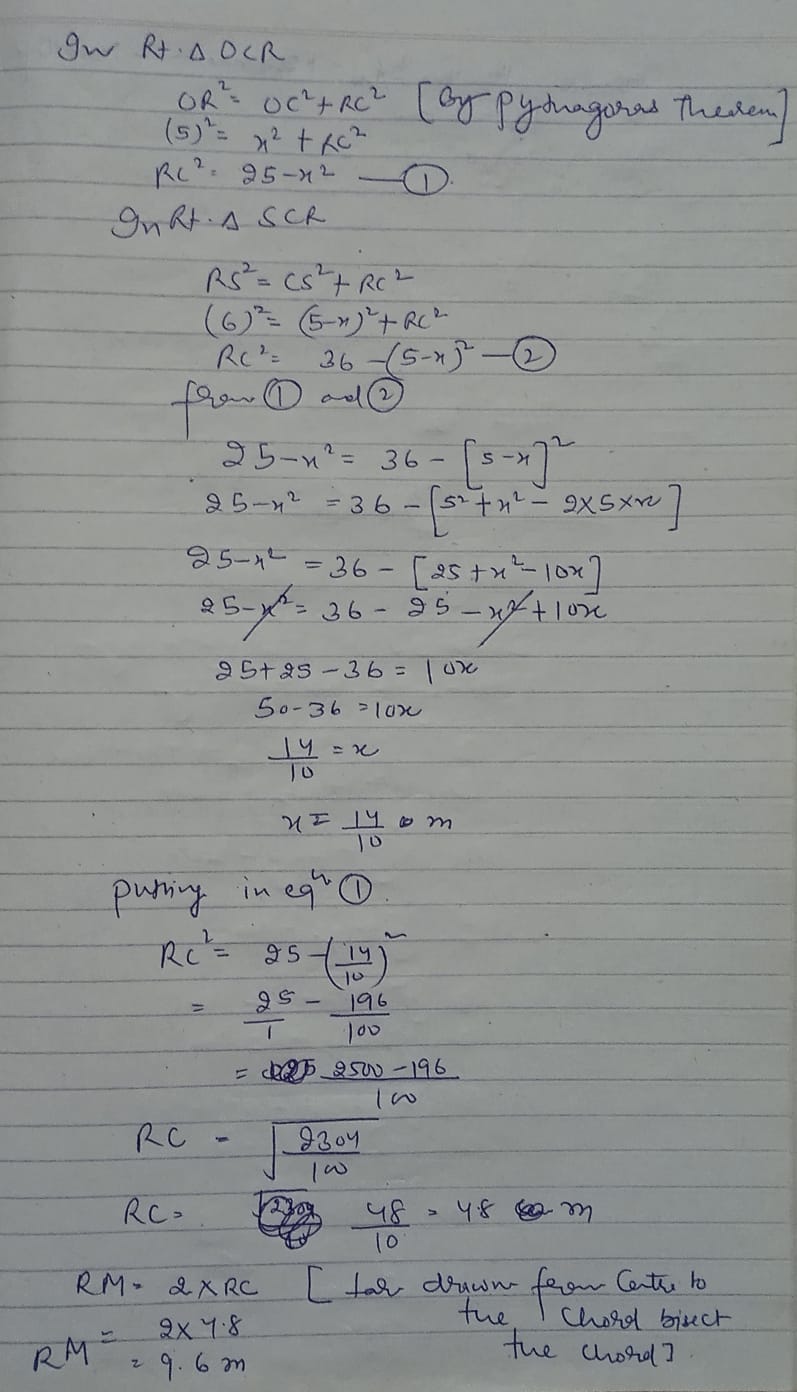 In Rt. Δ OCR
OR² = OC² + RC² [By Pythagoras Theorem]
(5)² = x² + RC²
RC² = 25-x² — ①.
In Rt. Δ SCR
RS² = CS² + RC²
(6)² = (5-x)² + RC²
RC² = 36 - (5-x)² — ②
from ① and ②
25-x² = 36 - [5-x]²
25-x² = 36 - [5² + x² - 2×5×x]
25-x² = 36 - [25 + x² - 10x]
25-x² = 36 - 25 - x² + 10x
25+25-36 = 10x
50-36 = 10x
14/10 = x
x = 14/10 m
putting in eqⁿ ①.
RC² = 25 - (14/10)²
= 25/1 - 196/100
= 2500-196/100
RC = √2304/100
RC = 48/10 = 4.8 m
RM = 2×RC [ far drawn from Centre to
the chord bisect
the chord].
RM = 2×4.8
= 9.6 m